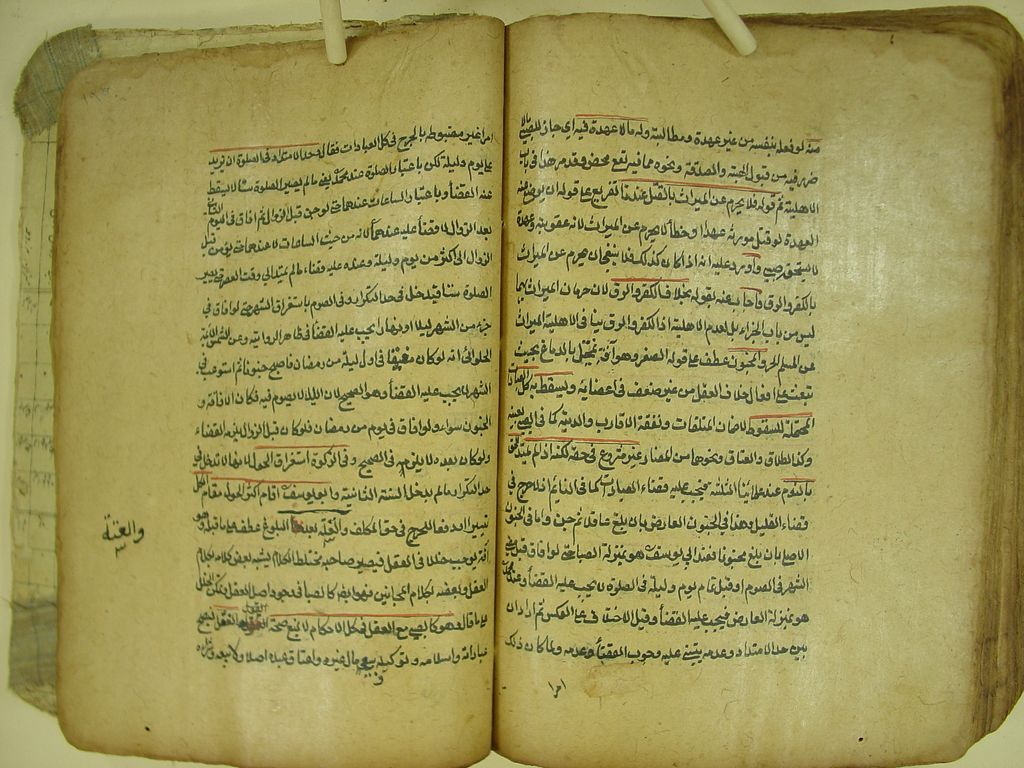 منه لو فعله بنفسه من غير عهدة ومطالبة وله ما لا عهدة فيه اي جاز للصبي ما لا
ضرر فيه من قبول الهبة والصدقة ونحوه مما فيه نفع محض وقد مر هذا في باب
الاهلية ثم قوله فلا يحرم عن الميراث بالقتل عندنا تفريع على قوله ان يوضع عنه
العهدة لو قتل مورثه عمدا او خطأ لا يحرم عن الميراث لانه عقوبة وعهدة
لا يستحق وصبي واورد عليه انه اذا كان كذلك فلا ينبغي ان يحرم عن الميراث
بالكفر والرق فاجاب عنه بقوله بخلاف الكفر والرق لان حرمان الميراث بهما
ليس من باب الجزاء بل لعدم الاهلية اذ الكفر والرق ينافي الاهلية للميراث
عن المسلم الحر والجنون عطف على قوله الصغر وهو آفة تحل بالدماغ بحيث
تبعث على افعال خلاف العقل من غير ضعف في اعضائه ويسقط به كل العبادات
المحتملة للسقوط لا ضمان المتلفات ونفقة الاقارب والدية كما في الصبي بعينه
وكذا الطلاق والعتاق ونحوهما من المضار غير مشروع في حقه لكنه اذا لم يمتد الحق
بالنوم عند علمائنا الثلثة فيجب عليه قضاء العبادات كما في النائم اذ لا حرج في
قضاء القليل وهذا في الجنون العارضي بان بلغ عاقلا ثم جن واما في الجنون
الاصلي بان بلغ مجنونا فعند ابي يوسف هو بمنزلة الصبا حتى لو افاق قبل مضي
الشهر في الصوم او قبل تمام يوم وليلة في الصلوة لا يجب عليه القضأ وعند محمد
هو بمنزلة العارض فيجب عليه القضأ وقيل الاختلاف على العكس ثم اراد ان
يبين حد الامتداد وعدمه يبتني عليه وجوب القضأ وعدمه ولما كان ذلك
امرا
امرا غير مضبوط بالجرح في كل العبادات فقال وحد الامتداد في الصلوة ان يزيد
على يوم وليلة لكن باعتبار الصلوة عند محمد يعني ما لم يصر الصلوة ستا لا يسقط
عنه القضأ وباعتبار الساعات عندهما حتى لو جن قبل الزوال ثم افاق في اليوم الثاني
بعد الزوال لا قضأ عليه عندهما لانه من حيث الساعات عندهما جنونه من قبل
الزوال الى اكثر من يوم وليلة وعنده عليه قضاء ما لم يمتد الى وقت العصر حتى يصير
الصلوة ستا فيدخل في حد التكرار وفي الصوم باستغراق الشهر حتى لو افاق في
جزء من الشهر ليلا او نهارا يجب عليه القضأ في ظاهر الرواية وعن شمس الائمة
الحلوائي انه لو كان مفيقا في اول ليلة من رمضان فاصبح مجنونا ثم استوعب في
الشهر لا يجب عليه القضأ وهو الصحيح لان الليل لا يصوم فيه فكان الافاقة و
الجنون سواء ولو افاق في يوم من رمضان فلو كان قبل الزوال يلزمه القضاء
ولو كان بعده لا يلزمه في الصحيح وفي الزكوة استغراق الحول لانها لا تدخل في
حد التكرار ما لم يدخل السنة الثانية وابو يوسف اقام اكثر الحول مقام الكل
تيسيرا ودفعا للحرج في حق المكلف والعته بعد البلوغ عطف على ما قبله وهو
آفة توجب خللا في العقل فيصير صاحبه مختلط الكلام يشبه بعض كلامه بكلام
العقلاء وبعضه بكلام المجانين فهو ايضا كالصبا في وجود اصل العقل وتمكن الخلل
على ما قال وهو كالصبي مع العقل في كل الاحكام لا يمنع صحة القول والفعل فيصح
عباداته واسلامه وتوكيله ببيع مال غيره واعتاق عبده
والعته